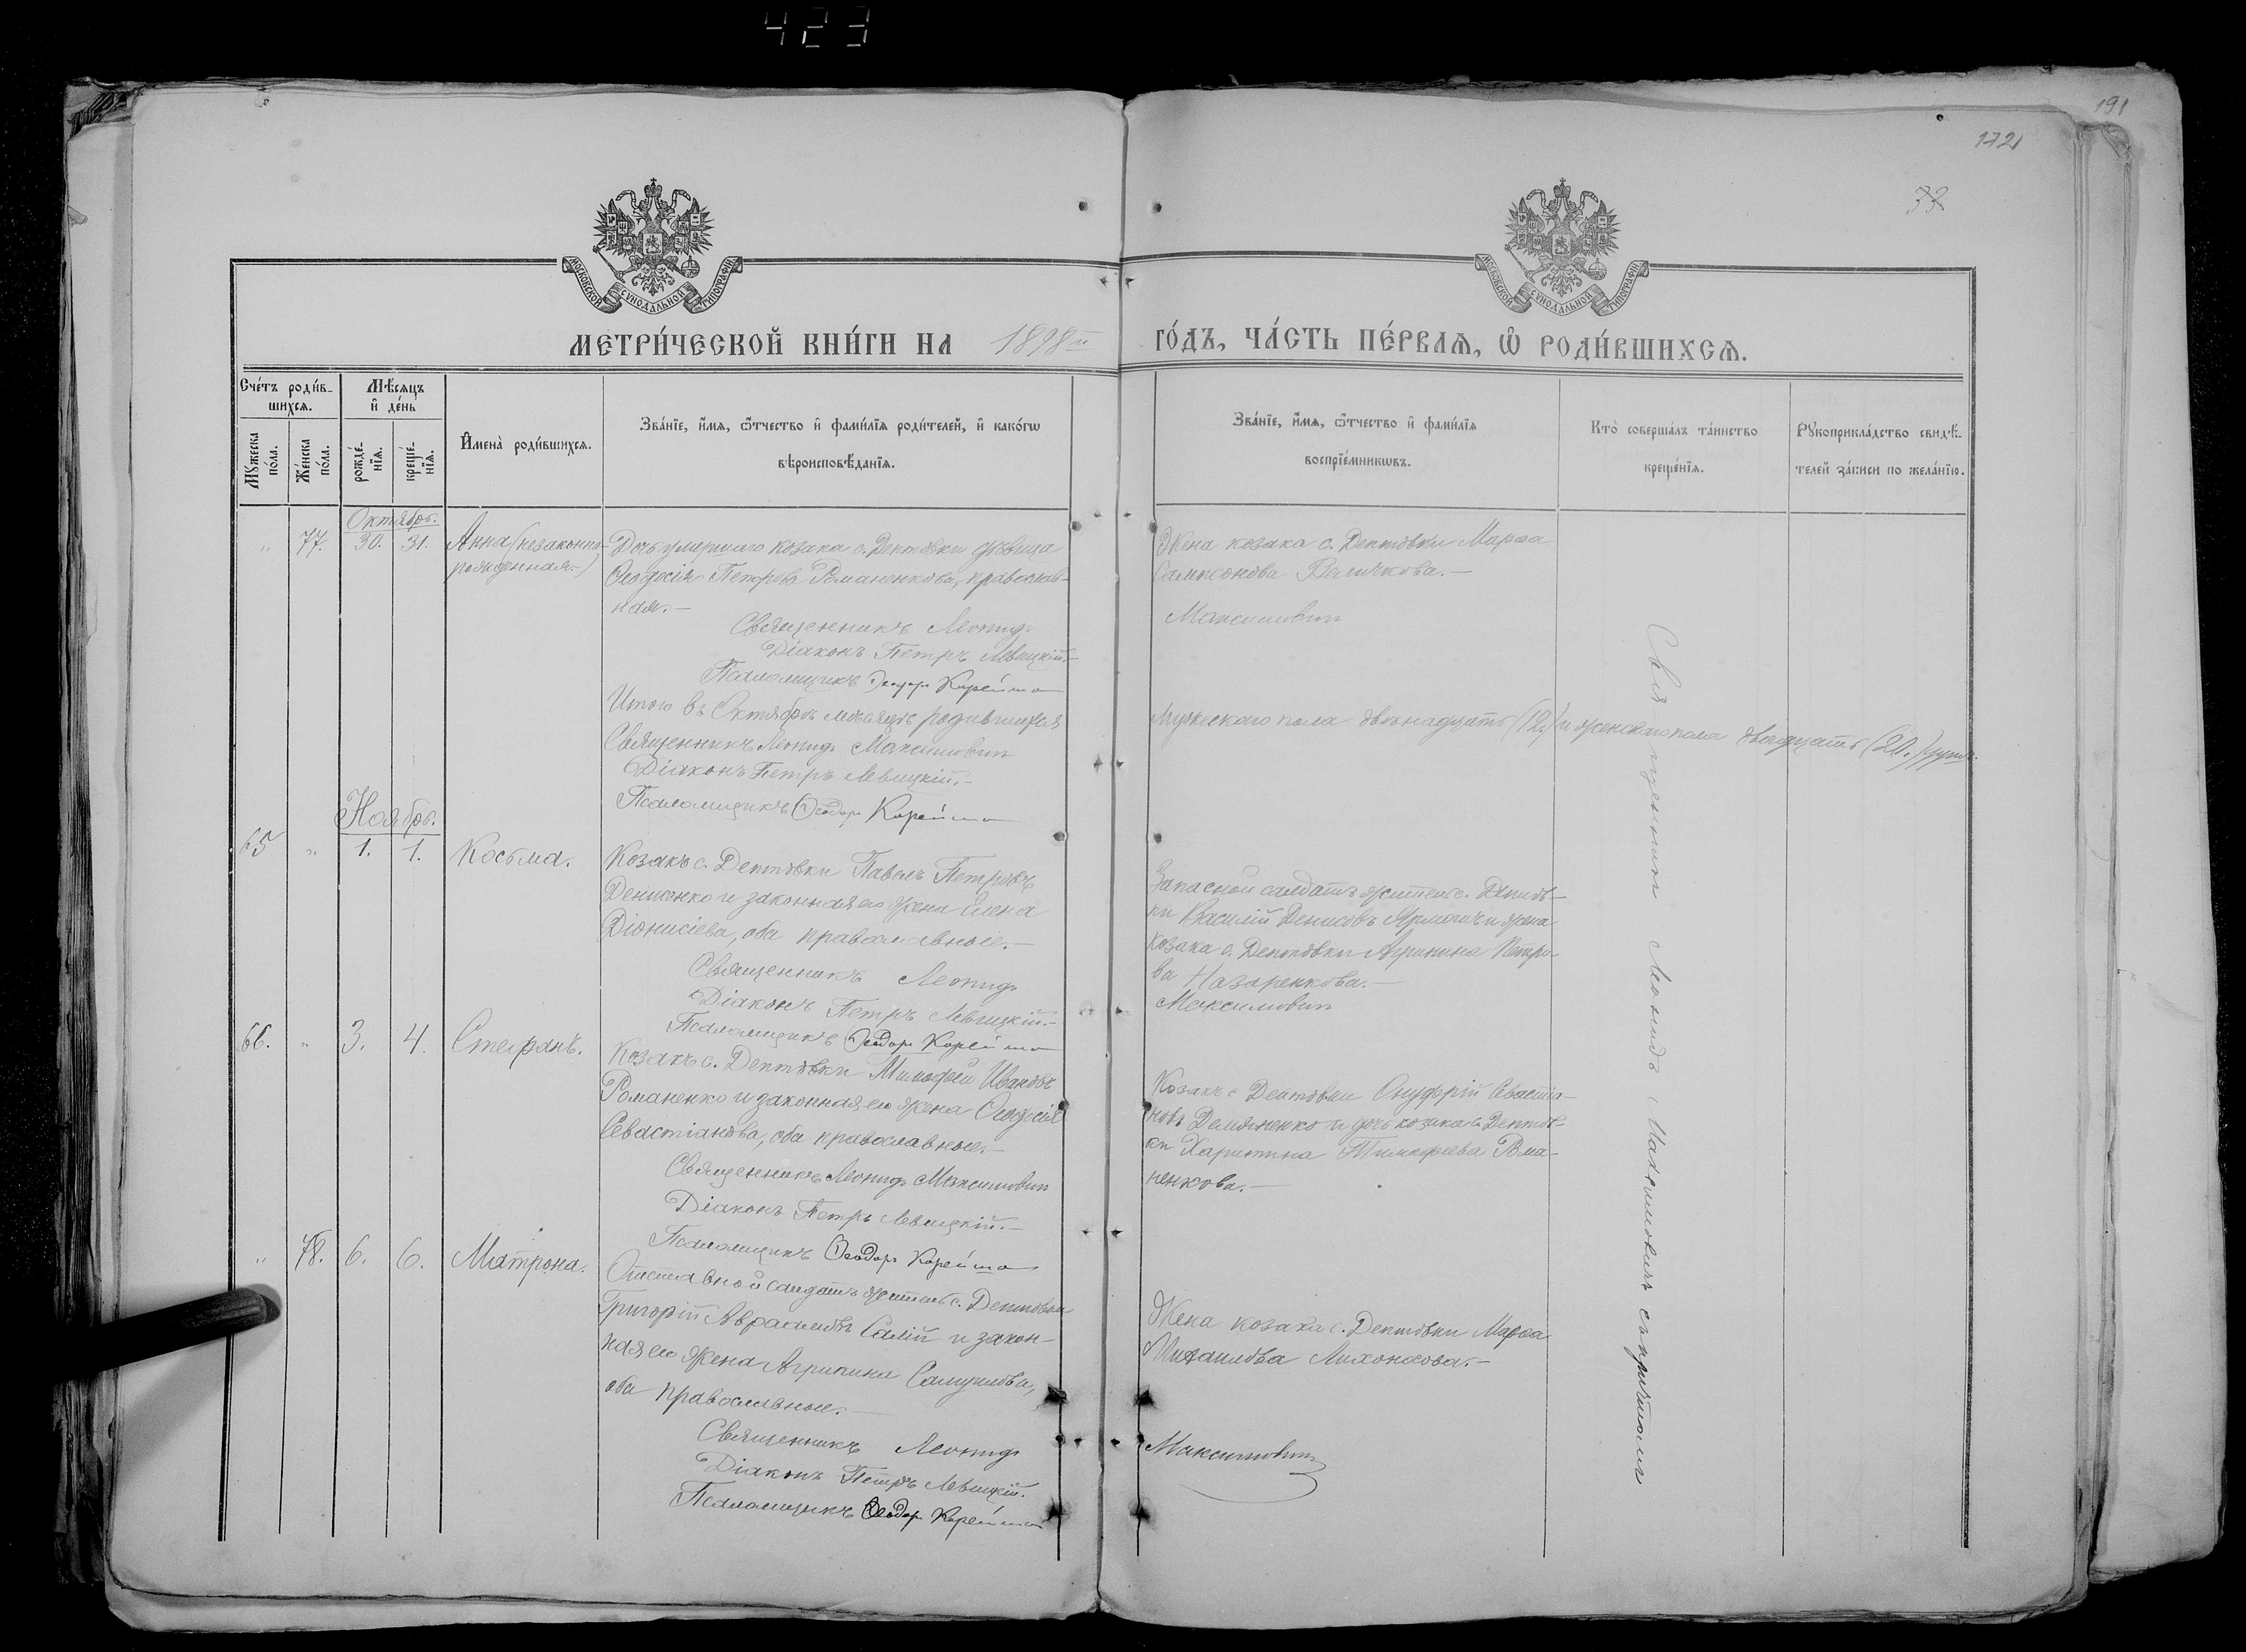 423
191
172
33
МОСКОВСКОЙ СУНОДАЛЬНОЙ ТИПОГРАФІИ
МОСКОВСКОЙ СУНОДАЛЬНОЙ ТИПОГРАФІИ
МЕТРИ́ЧЕСКОЙ КНИ́ГИ НА 1898й ГО́ДЪ, ЧА́СТЬ ПЕ́РВАѦ, Ѡ РОДИ́ВШИХСѦ.
Сче́тъ роди́в-
шихсѧ.
Мѣ́сѧцъ
и҆ де́нь
Мꙋжеска по́ла.
Же́нска по́ла.
рожде́-нїѧ.
креще́-нїѧ.
И҆мена̀ роди́вшихсѧ.
Зва́нїе, и҆́мѧ, ѻ҆́тчество и҆ фами́лїѧ роди́телей, и҆ како́гѡ
вѣроисповѣ́данїѧ.
Зва́нїе, и҆́мѧ, ѻ҆́тчество и҆ фами́лїѧ
воспрїе́мникѡвъ.
Кто̀ соверша́лъ та́инство
креще́нїѧ.
Рꙋкоприкла́дство свидѣ́-
телей за́писи по жела́нїю.
Октябрь.
" 77. 30. 31. Анна (незаконно-
рожденная.)
Дочь умершаго козака с. Дептовки дѣвица
Ѳеодосія Петрова Романенкова, православ-
ная.—
Священникъ Леонидъ
Діаконъ Петръ Левицкій.—
Псаломщикъ Ѳеодоръ Корейша
Жена козака с. Дептовки Марѳа
Сампсонова Величкова.—
Максимович
Итого въ Октябрѣ мѣсяцѣ родившихся
мужескаго пола двѣнадцать (12.) и женскаго пола двадцать (20.) душъ.
Священникъ Леонидъ Максимович
Діаконъ Петръ Левицкій.—
Псаломщикъ Ѳеодоръ Корейша
Ноябрь.
65 " 1. 1. Косьма.
Козакъ с. Дептовки Павелъ Петровъ
Денисенко и законная его жена Елена
Діонисіева, оба православные.—
Священникъ Леонидъ
Діаконъ Петръ Левицкій.—
Псаломщикъ Ѳеодоръ Корейша
Запасной солдатъ житель с. Дептов-
ки Василій Денисовъ и жена
козака с. Дептовки Петро-
ва Назаренкова.—
Максимович
66. " 3. 4. Стефанъ.
Козакъ с. Дептовки Тимофей Ивановъ
Романенко и законная его жена Ѳеодосія
Севастіанова, оба православные.—
Священникъ Леонидъ Максимович
Діаконъ Петръ Левицкій.—
Псаломщикъ Ѳеодоръ Корейша
Козакъ с. Дептовки Онуфрій Севастіа-
новъ Демяненко и дочь козака с. Дептов-
ки Харитина Тимофеева Рома-
ненкова.—
" 78. 6. 6. Матрона.
Отставной солдатъ житель с. Дептовки
Григорій Авраамовъ Салій и закон-
ная его жена Агрипина Самуилова,
оба православные.—
Священникъ Леонидъ
Діаконъ Петръ Левицкій.
Псаломщикъ Ѳеодоръ Корейша
Жена козака с. Дептовки Марѳа
Михаилова Лихоносова.—
Максимович
Священникъ Леонидъ Максимовичъ съ причтомъ